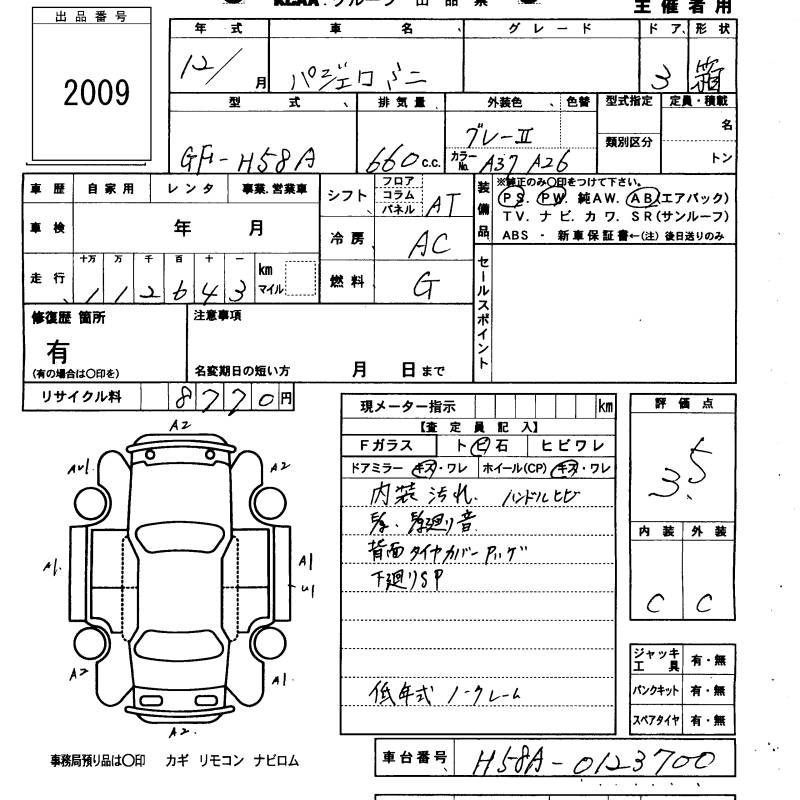 KCAA・グループ 出品票
主催者用
出品番号
2009
年式 車名 グレード ドア 形状
12/ 月 パジェロミニ 3 箱
型式 排気量 外装色 色替 型式指定 定員・積載
GF-H58A 660c.c. グレーⅡ 類別区分 名
カラーNo. A37 A26 トン
車歴 自家用 レンタ 事業.営業車
車検 年 月
走行 十万 万 千 百 十 一 km マイル
112643
シフト フロア コラム パネル AT
冷房 AC
燃料 G
装備品
※純正のみ〇印をつけて下さい。
PS. PW. 純AW. AB(エアバック)
TV. ナビ. カワ. SR(サンルーフ)
ABS ・ 新車保証書←(注)後日送りのみ
セールスポイント
修復歴 箇所
有
(有の場合は〇印を)
注意事項
名変期日の短い方 月 日まで
リサイクル料 8770円
現メーター指示 km
【査定員記入】
Fガラス トビ石 ヒビワレ
ドアミラー キズ・ワレ ホイール(CP) キズ・ワレ
内装汚れ. ハンドルヒビ
廻り音
背面タイヤカバーアッゲ
下廻りSP
低年式 ノークレーム
評価点
3.5
内装 外装
C C
A2
AU1 A2
A1 A1
U1
A2 A1
A2
ジャッキ工具 有・無
パンクキット 有・無
スペアタイヤ 有・無
事務局預り品は〇印 カギ リモコン ナビロム
車台番号 H58A-0123700